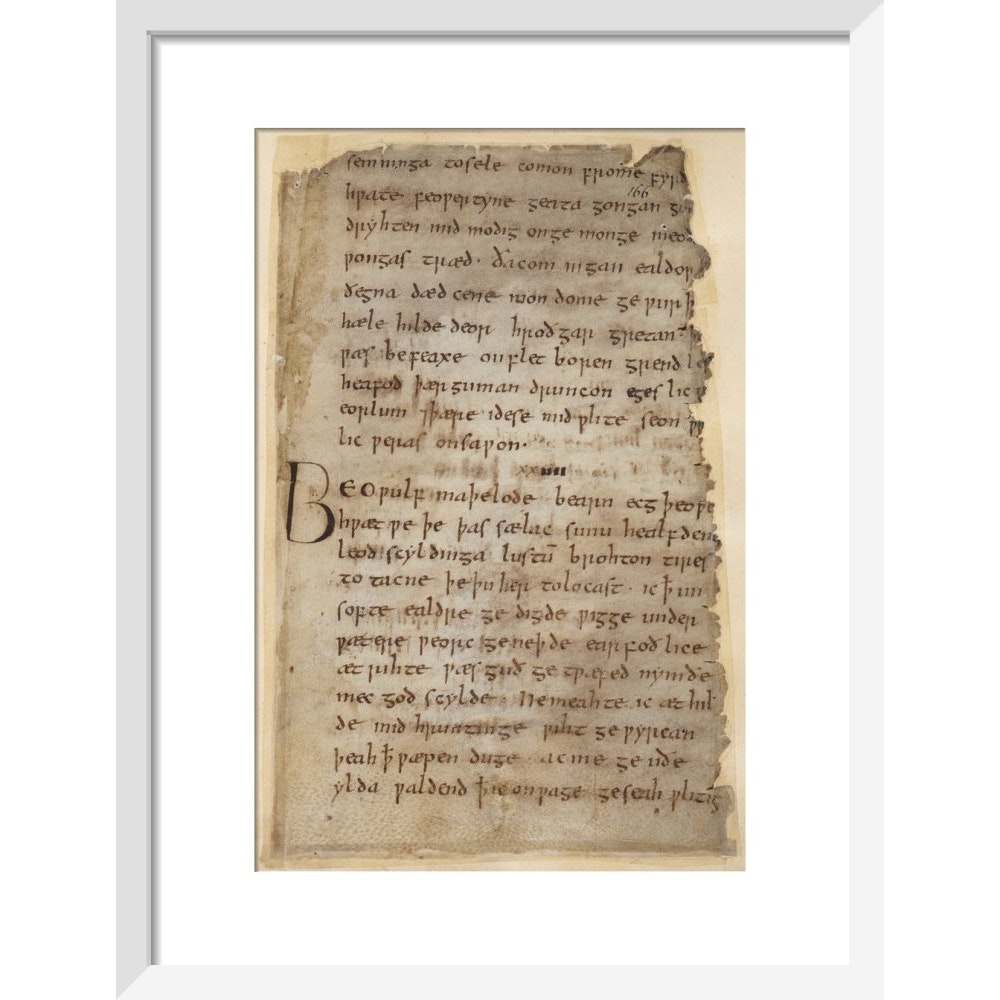 semninga tosele comon frome fyrd
166
hƿate feoƿertyne geata gongan gu
dryhten mid modig onge monge meod
ƿongas træd · ða com in gan ealdor
ðegna dæd cene mon dome ge ƿurþ
hæle hilde deor hroðgar gretan · þ
ƿæs be feaxe on flet boren grendles
heafod þær guman druncon eges lic
eorlum ⁊ þære idese mid ƿlite seon
lic ƿeras onsaƿon ·
xxiiii
BEOƿulf maþelode bearn ecg þeoƿe
hƿæt ƿe þe þas sælac sunu healfden
leod scyldinga lustū brohton tires
to tacne þe þu her tolocast · ic ꝥ un
softe ealdre ge digde ƿigge under
ƿætere ƿeorc geneþde earfoð lice
æt rihte ƿæs guð ge tƿæfed nymðe
mec god scylde · Ne meahte ic æt hil
de mid hruntinge ƿiht ge ƿyrcan
þeah ꝥ ƿæpen duge · ac me ge uðe
ylda ƿaldend ꝥ ic on ƿage geseah ƿlitig